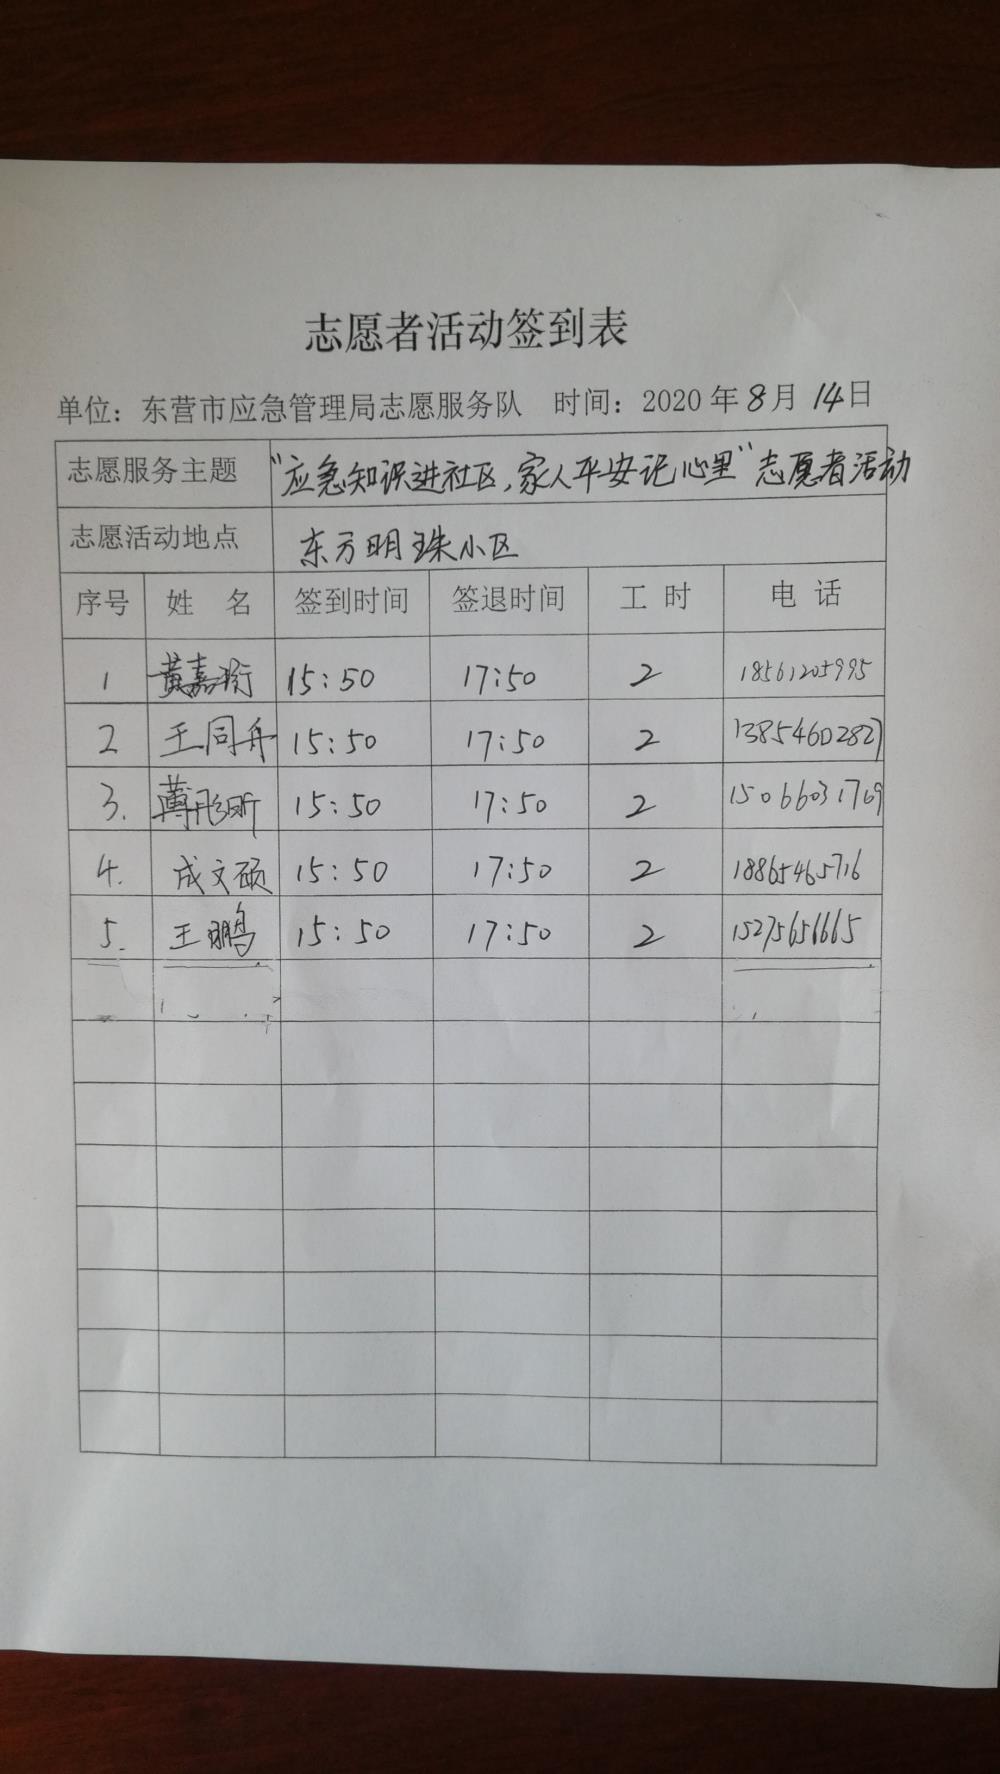 志愿者活动签到表
单位：东营市应急管理局志愿服务队 时间：2020年8月14日
志愿服务主题 "应急知识进社区，家人平安记心里"志愿者活动
志愿活动地点 东方明珠小区
序号 姓 名 签到时间 签退时间 工 时 电 话
1 黄嘉珩 15:50 17:50 2 18561205995
2 王同舟 15:50 17:50 2 13854602827
3. 15:50 17:50 2 15066031769
4. 成文硕 15:50 17:50 2 18865465716
5. 王鹏 15:50 17:50 2 15275656665